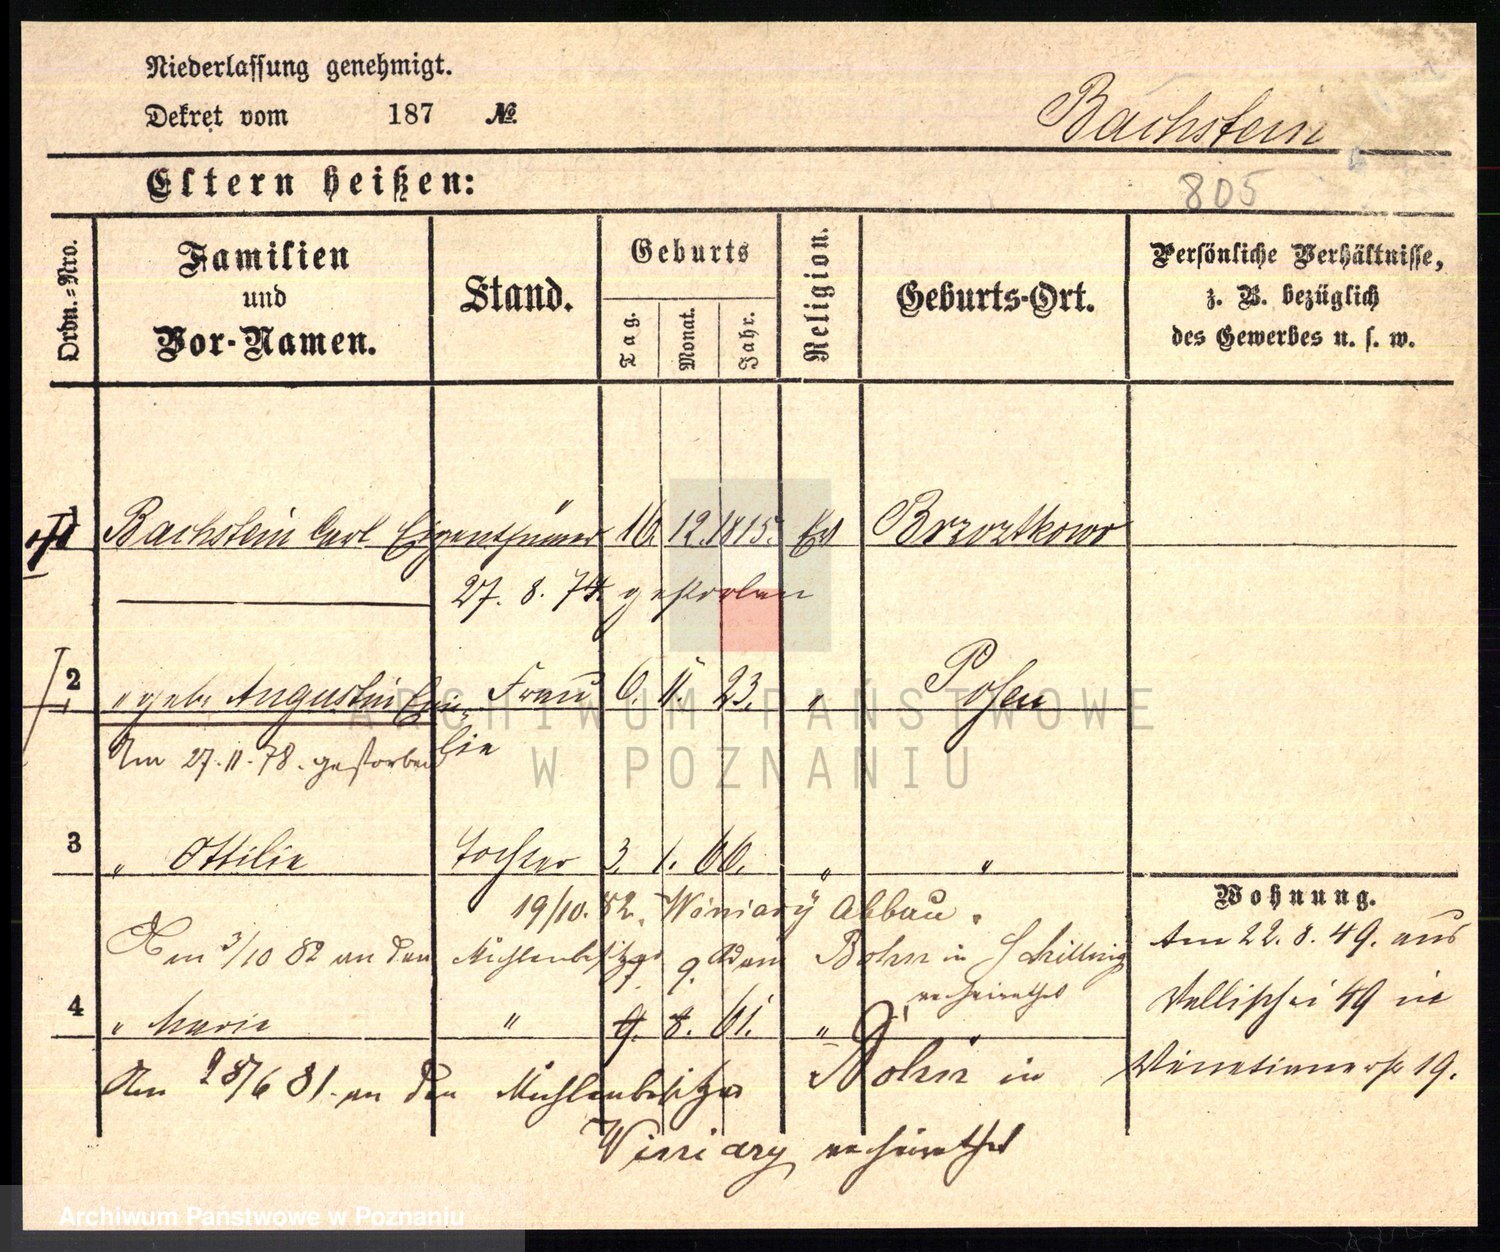 Niederlassung genehmigt.
Dekret vom 187 №
Bachstein
Eltern heißen:
805
Ordn.=Nro.
Familien und Vor-Namen.
Stand.
Geburts
Tag.
Monat.
Jahr.
Religion.
Geburts-Ort.
Persönliche Verhältnisse, z. B. bezüglich des Gewerbes u. s. w.
1 Bachstein Carl Eigenthümer 16. 12. 1815. Ev
27. 8. 74. gestorben
2 " geb. Augustin Emilie Frau 6. 11. 23. " Posen
Am 27.11.78. gestorben
3 " Ottilie Tochter 3. 1. 66. " "
19/10. 82. Winiary Abbau.
Am 3/10 82 an den Mühlenbesitzer Adam Bohn in Schilling verheirathet
4 " Marie " 9. 8. 61. " "
Am 28/6 81. an den Mühlenbesitzer Bohn in
Winiary verheirathet
Wohnung.
Am 22. 8. 49. aus
Wallischei 49 in
Venetianerstr 19.
ARCHIWUM PAŃSTWOWE
W POZNANIU
Archiwum Państwowe w Poznaniu